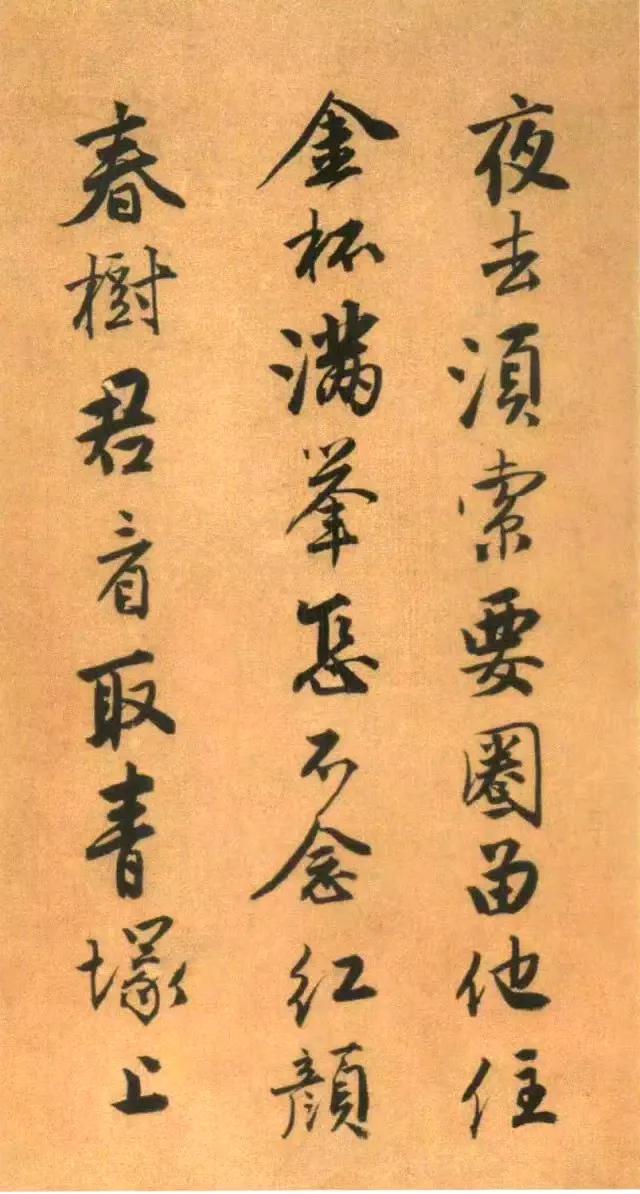 夜去須索要圈留他住
金杯滿举怎不念红顔
春樹君看取青塚上